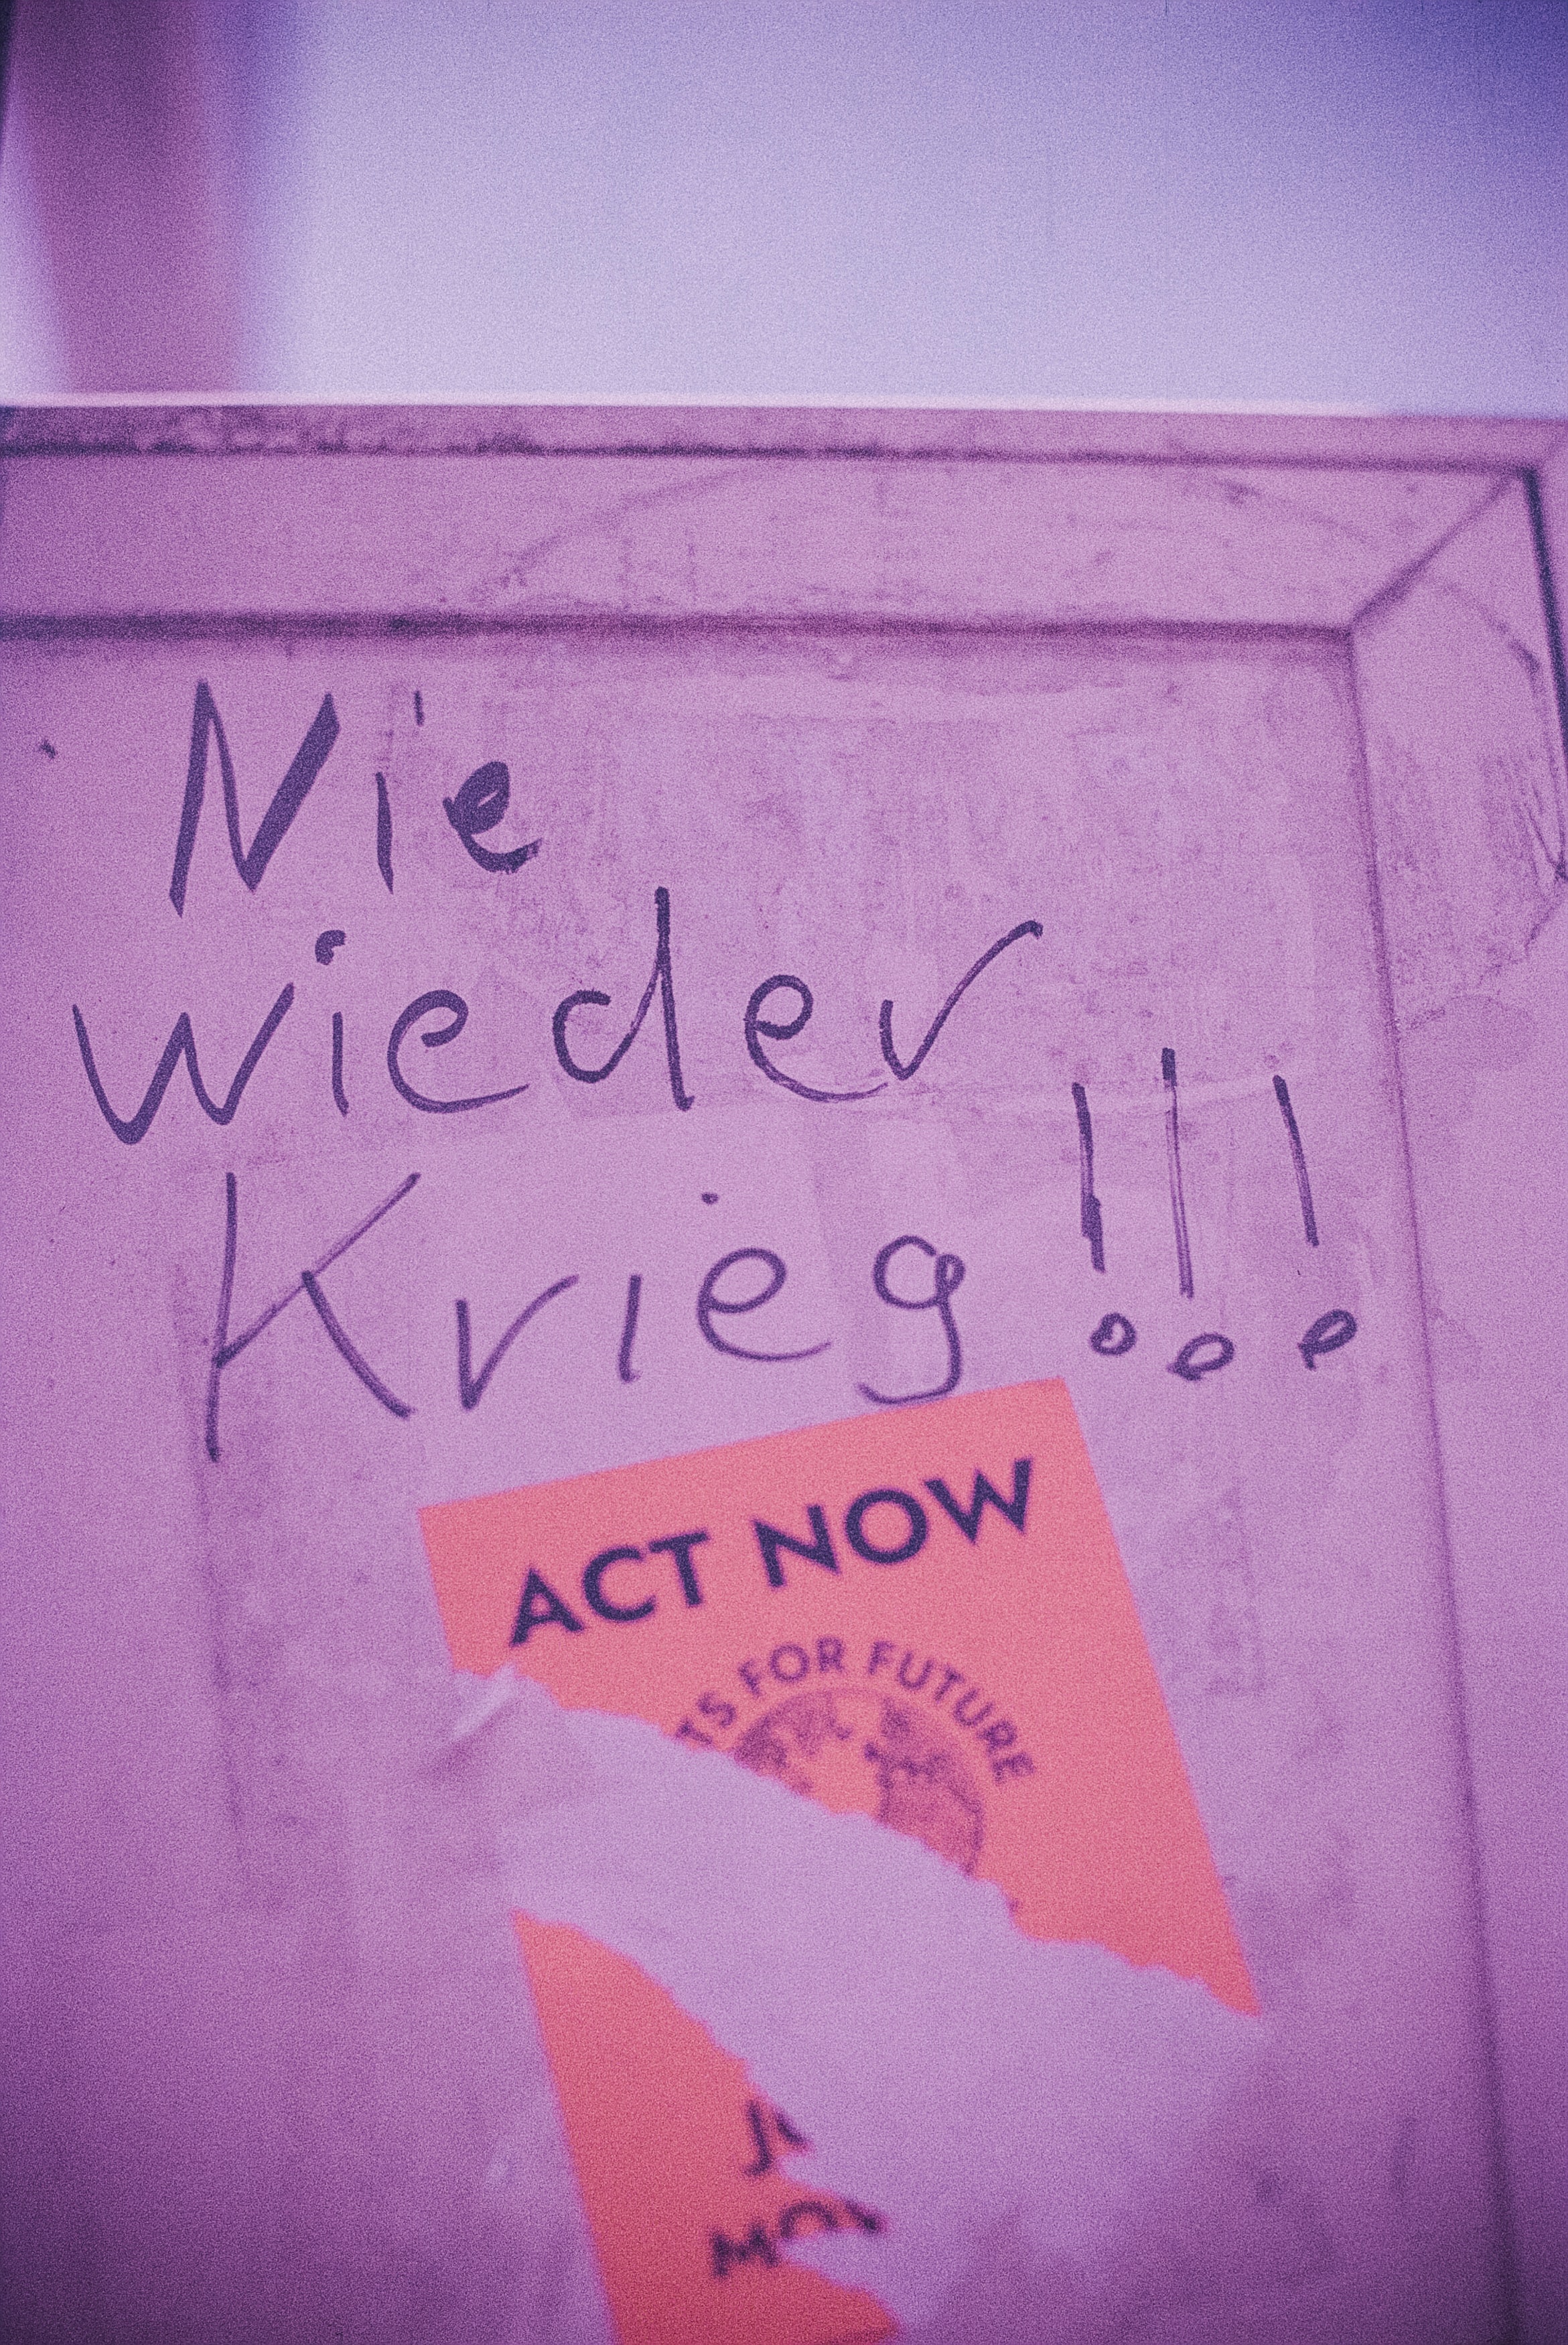 Nie
wieder
Krieg!!!
ACT NOW
FOR FUTURE